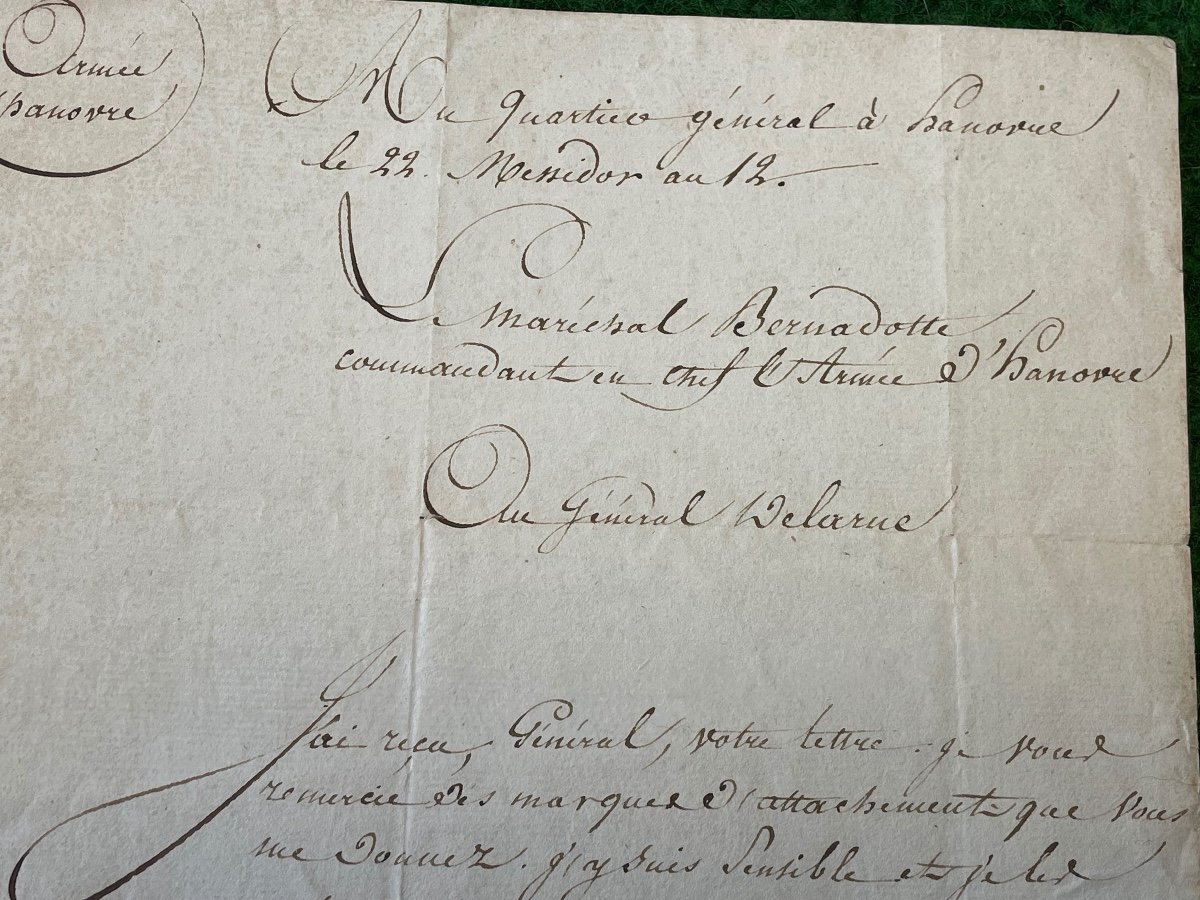 Armée
hanovre
Au Quartier général à hanovre
le 22. Messidor an 12.
Le maréchal Bernadotte
commandant en chef l'Armée d'hanovre
Au Général Delarue
J'ai reçu, Général, votre lettre. je vous
remercie des marques d'attachement que vous
me donnez. j'y suis sensible et je les